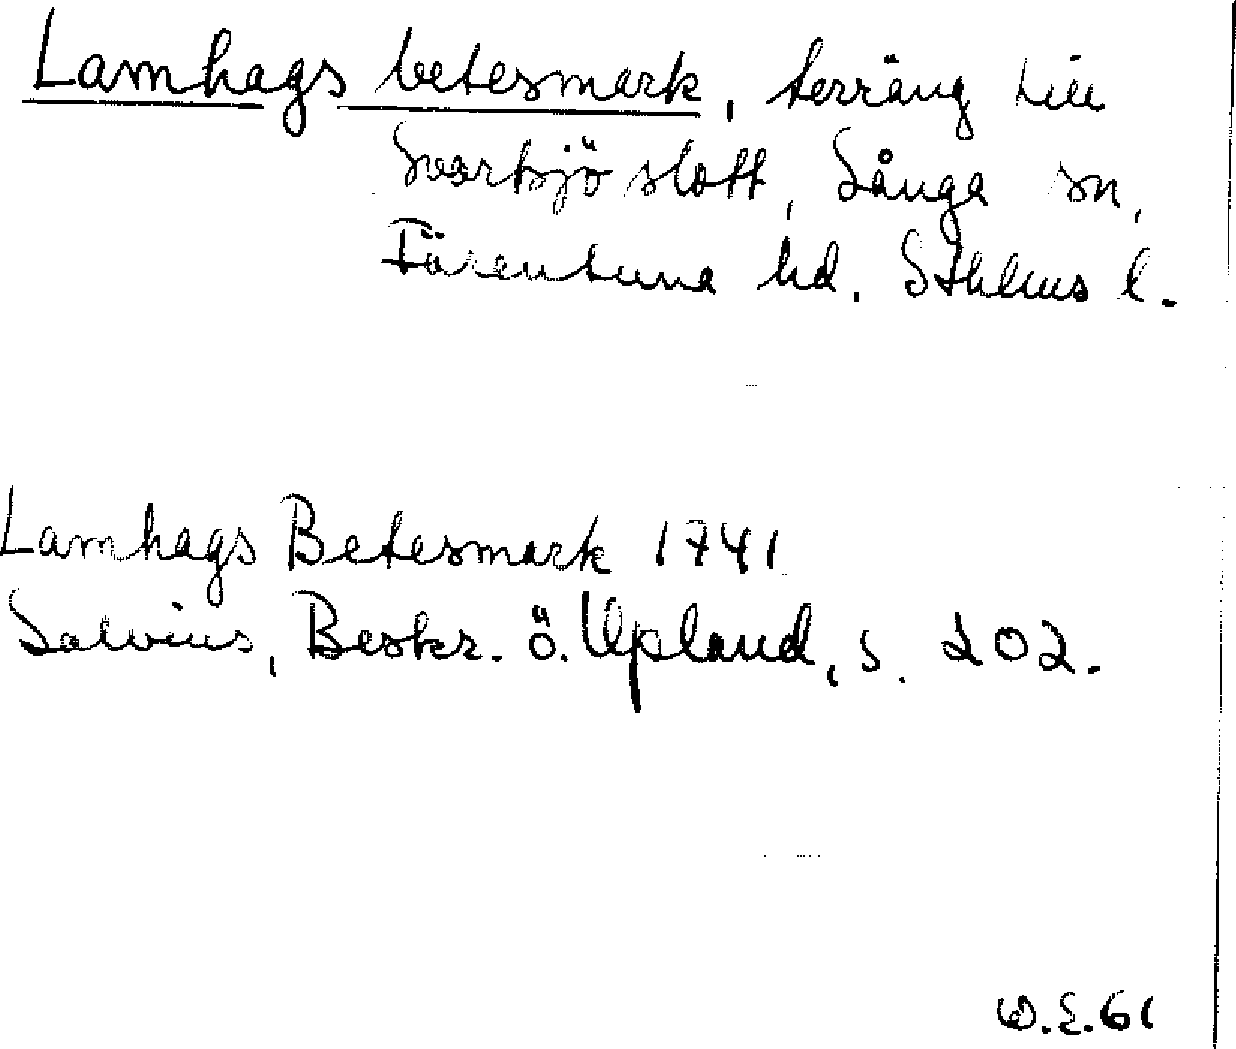 Lamhags betesmark, terräng till
Svartsjö slott, Sånga sn,
Färentuna hd. Sthlms l.
Lamhags Betesmark 1741
Salvius, Beskr. ö. Upland, s. 202.
W.E.61